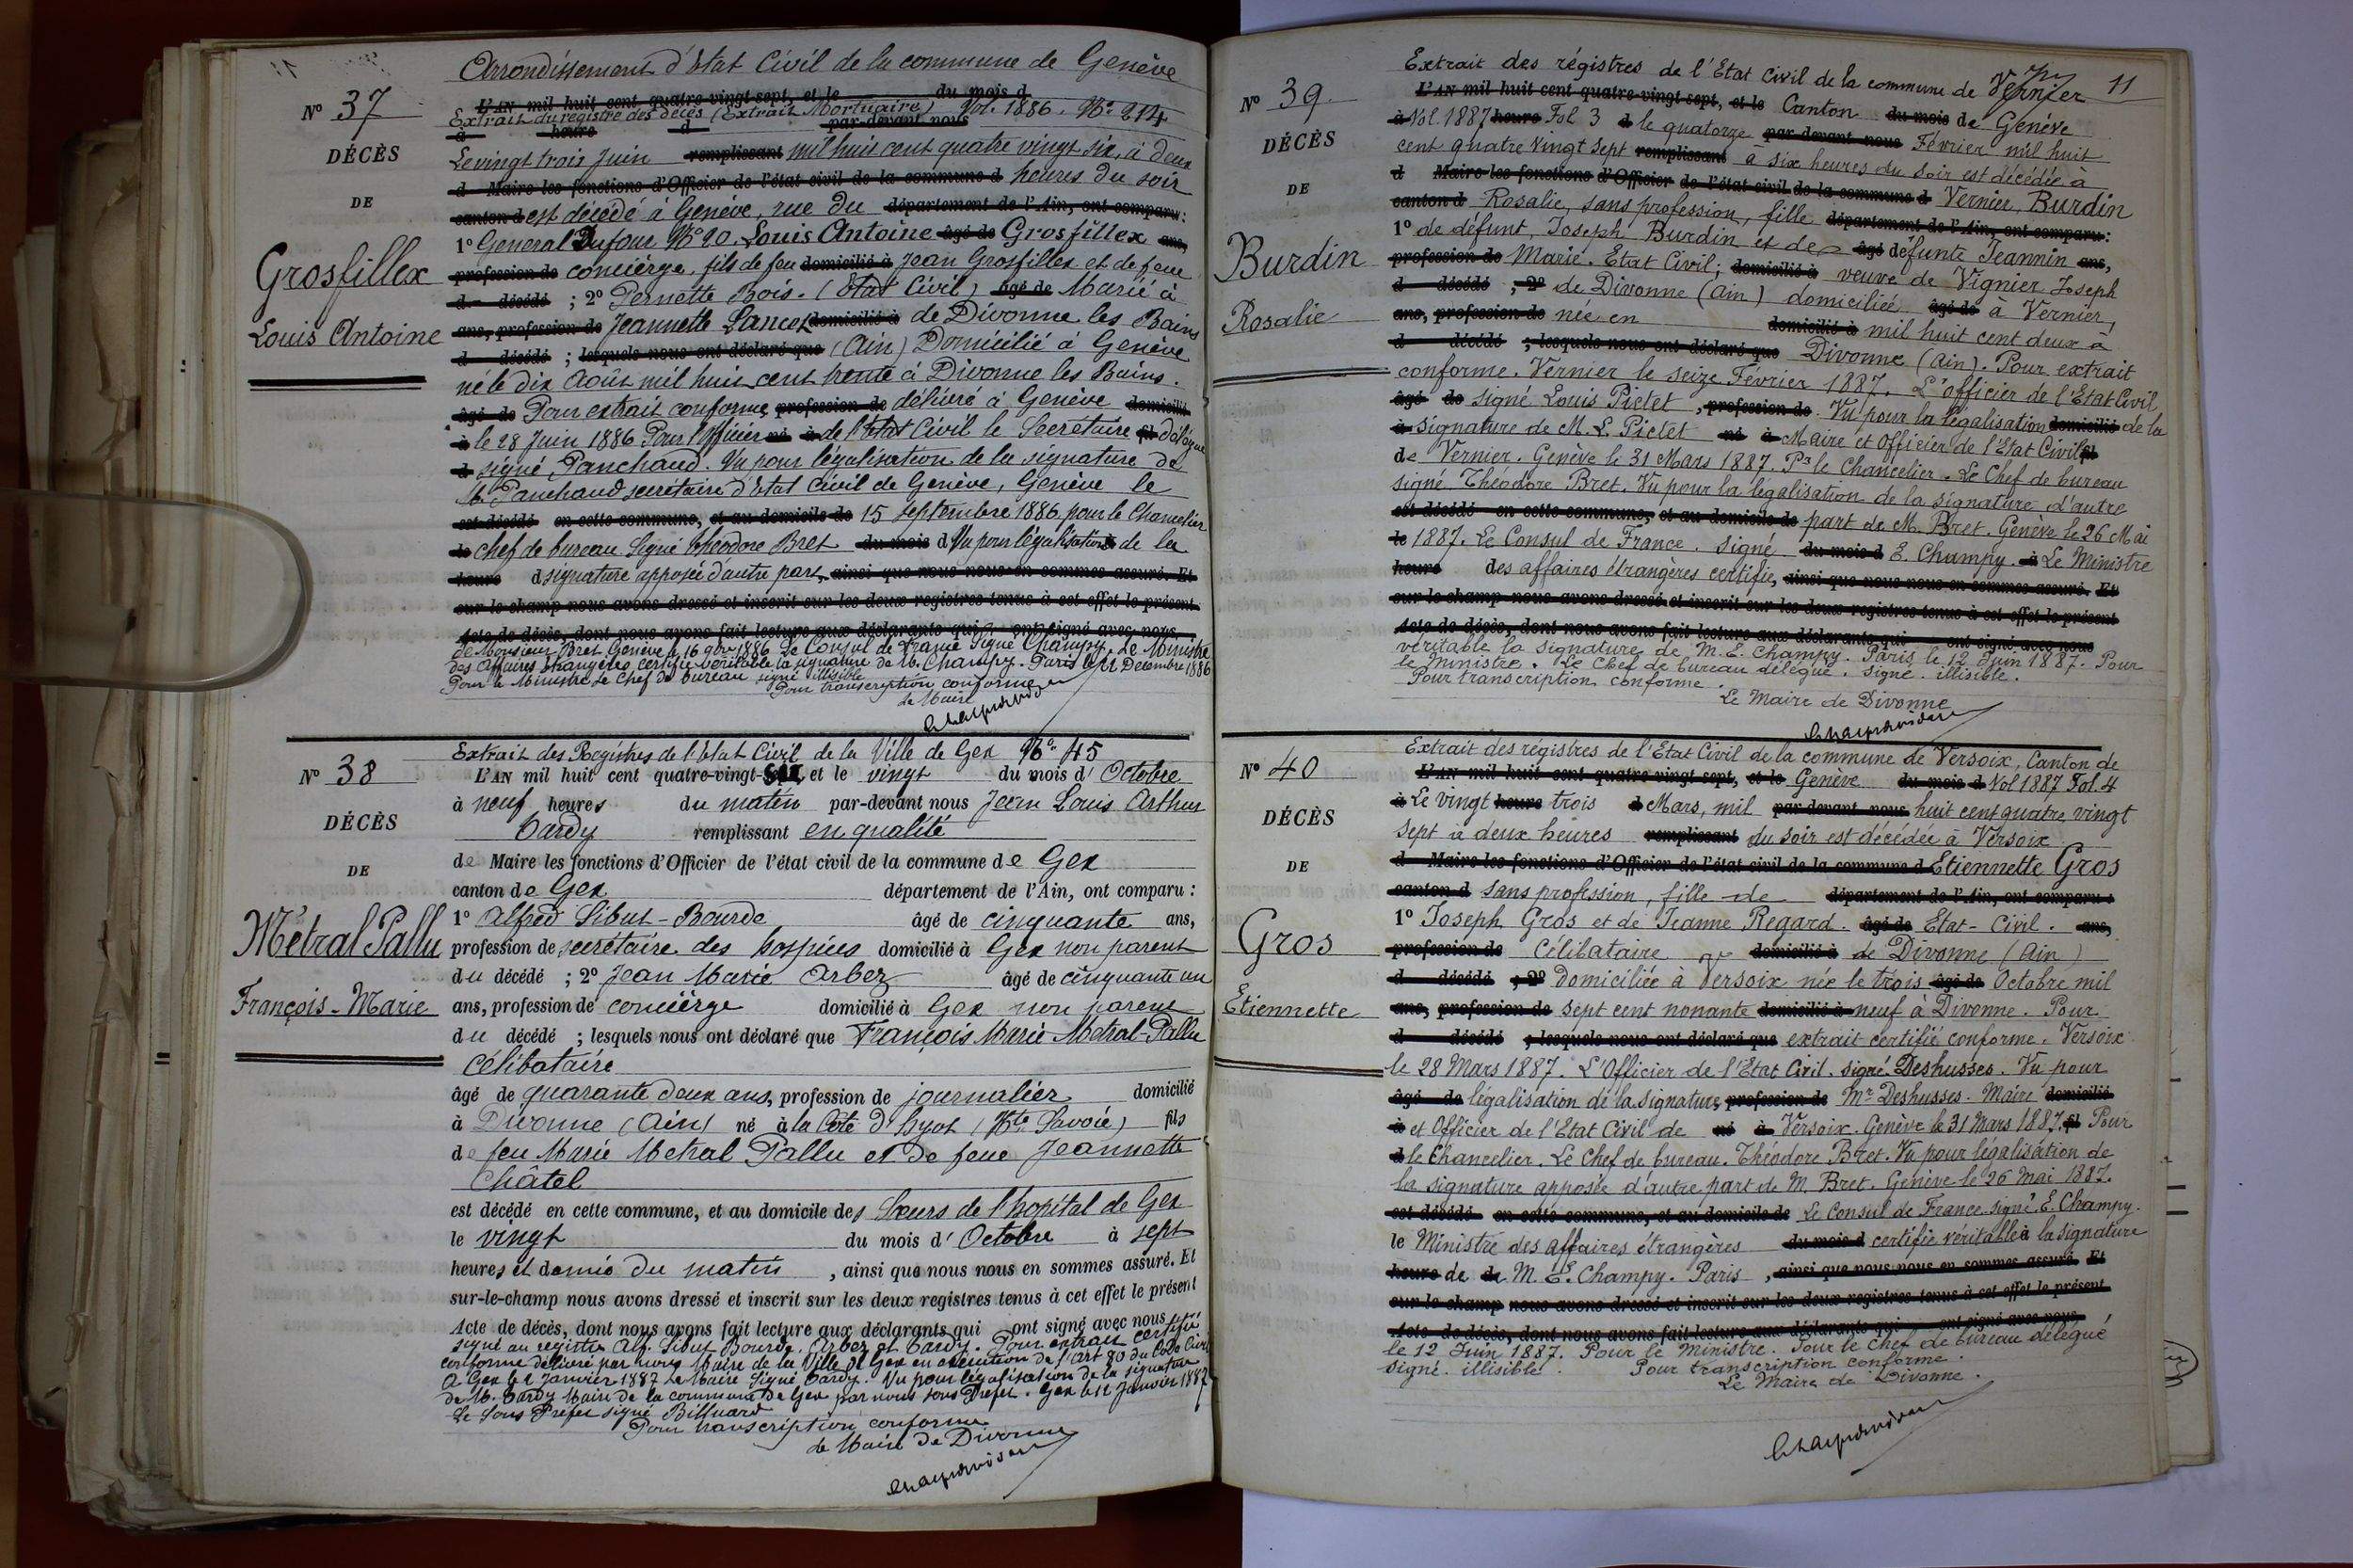 Arrondissement d'Etat Civil de la commune de Genève
No 37
L'AN mil huit cent quatre-vingt-sept, et le du mois d
Extrait du registre des décès (Extrait Mortuaire) Vol. 1886. No 214
à heure d par-devant nous
DÉCÈS
Le vingt trois Juin remplissant mil huit cent quatre vingt six, à deux
d Maire les fonctions d'Officier de l'état civil de la commune d heures du soir
DE
canton d est décédé à Genève, rue du département de l'Ain, ont comparu :
1º General Dufour No 20. Louis Antoine âgé de Grosfillex ans,
Grosfillex
profession de concièrge, fils de feu domicilié à Jean Grosfillex et de feue
d décédé ; 2º Pernette Bois. (Etat Civil) âgé de Marié à
Louis Antoine
ans, profession de Jeannette Lancot domicilié à de Divonne les Bains
d décédé ; lesquels nous ont déclaré que (Ain) Domicilié à Genève
né le dix Août mil huit cent trente à Divonne les Bains.
âgé de Pour extrait conforme, profession de délivré à Genève domicilié
à le 28 Juin 1886 Pour l'Officier né à de l'Etat Civil le Secrétaire fil Délégué
d signé Panchaud. Vu pour légalisation de la signature de
M. Panchaud secrétaire d'Etat Civil de Genève, Genève le
est décédé en cette commune, et au domicile de 15 septembre 1886 pour le Chancelier
le chef de bureau Signé théodore Bret du mois d Vu pour légalisation à de la
heure d signature apposée d'autre part, ainsi que nous nous en sommes assuré. Et
sur-le-champ nous avons dressé et inscrit sur les deux registres tenus à cet effet le présent
Acte de décès, dont nous avons fait lecture aux déclarants qui ont signé avec nous
de Monsieur Bret. Genève le 16 9bre 1886 Le Consul de France Signé Champy. Le Ministre
des Affaires étrangères certifie véritable la signature de M. Champy. Paris le 11 Décembre 1886
Pour le Ministre Le Chef de bureau signé illisible
Pour transcription conforme
Le Maire
Extrait des Registres de l'Etat Civil de la Ville de Gex No 45
No 38
L'AN mil huit cent quatre-vingt-six, et le vingt du mois d' Octobre
à neuf heures du matin par-devant nous Jean Louis Arthur
DÉCÈS
Tardy remplissant en qualité
DE
de Maire les fonctions d'Officier de l'état civil de la commune de Gex
canton de Gex département de l'Ain, ont comparu :
1º Alfred Sibut-Bourde âgé de cinquante ans,
Métral Pallu
profession de secrétaire des hospices domicilié à Gex non parent
du décédé ; 2º Jean Marie Arbez âgé de cinquante un
François-Marie
ans, profession de concièrge domicilié à Gex non parent
du décédé ; lesquels nous ont déclaré que François Marie Metral-Pallu
célibataire
âgé de quarante deux ans, profession de journalier domicilié
à Divonne (Ain) né à la Côte d'hyot (Hte Savoie) fils
de feu Marie Metral Pallu et de feue Jeannette
Châtel
est décédé en cette commune, et au domicile des Sœurs de l'hôpital de Gex
le vingt du mois d' Octobre à sept
heures et demie du matin, ainsi que nous nous en sommes assuré. Et
sur-le-champ nous avons dressé et inscrit sur les deux registres tenus à cet effet le présent
Acte de décès, dont nous avons fait lecture aux déclarants qui ont signé avec nous
signé au registre Alf. Sibut Bourde, Arbez et Tardy. Pour extrait certifié
conforme délivré par nous Maire de la Ville de Gex en exécution de l'Art 80 du Code Civil
A Gex le 2 Janvier 1887 Le Maire Signé Tardy. Vu pour légalisation de la signature
de M. Tardy Maire de la commune de Gex par nous Sous Préfet. Gex le 12 Janvier 1887
Le Sous Préfet signé Billuard
Pour transcription conforme
Le Maire de Divonne
11
Extrait des régistres de l'Etat Civil de la commune de Vernier
No 39
L'AN mil huit cent quatre-vingt-sept, et le Canton du mois de Genève
à Vol. 1887 heure Fol. 3 d le quatorze par-devant nous Février mil huit
DÉCÈS
cent quatre vingt sept remplissant à six heures du soir est décédée à
d Maire les fonctions d'Officier de l'état civil de la commune d Vernier, Burdin
DE
canton d Rosalie, sans profession, fille département de l'Ain, ont comparu :
1º de défunt, Joseph Burdin et de âgé défunte Jeannin ans,
Burdin
profession de Marie. Etat Civil; domicilié à veuve de Vignier Joseph
d décédé ; 2º de Divonne (Ain) domiciliée âgé de à Vernier,
Rosalie
ans, profession de née en domicilié à mil huit cent deux à
d décédé ; lesquels nous ont déclaré que Divonne (Ain). Pour extrait
conforme. Vernier le seize Février 1887. L'officier de l'Etat Civil
âgé de signé Louis Pictet, profession de Vu pour la légalisation domicilié de la
à signature de M. L. Pictet né à Maire et Officier de l'Etat Civil fil
de Vernier. Genève le 31 Mars 1887. Pr le Chancelier. Le Chef de bureau
signé Théodore Bret. Vu pour la légalisation de la signature d'autre
est décédé en cette commune, et au domicile de part de M. Bret. Genève le 26 Mai
le 1887. Le Consul de France. signé du mois d E. Champy. à Le Ministre
heure des affaires étrangères certifie, ainsi que nous nous en sommes assuré. Et
sur-le-champ nous avons dressé et inscrit sur les deux registres tenus à cet effet le présent
Acte de décès, dont nous avons fait lecture aux déclarants qui ont signé avec nous
véritable la signature de M. E. Champy. Paris le 12 Juin 1887. Pour
le ministre. Le Chef de bureau délégué. signé. illisible.
Pour transcription conforme.
Le Maire de Divonne
Extrait des régistres de l'Etat Civil de la commune de Versoix, Canton de
No 40
L'AN mil huit cent quatre-vingt-sept, et le Genève du mois d Vol 1887 Fol. 4
à Le vingt heure trois d Mars, mil par-devant nous huit cent quatre vingt
DÉCÈS
sept à deux heures remplissant du soir est décédée à Versoix
d Maire les fonctions d'Officier de l'état civil de la commune d Etiennette Gros
DE
canton d sans profession, fille de département de l'Ain, ont comparu :
1º Joseph Gros et de Jeanne Regard. âgé de Etat-Civil. ans,
Gros
profession de Célibataire domicilié à de Divonne (Ain)
d décédé ; 2º domiciliée à Versoix née le trois âgé de Octobre mil
Etiennette
ans, profession de sept cent nonante domicilié à neuf à Divonne. Pour
d décédé ; lesquels nous ont déclaré que extrait certifié conforme. Versoix
le 28 Mars 1887. L'Officier de l'Etat Civil. signé. Deshusses. Vu pour
âgé de légalisation de la signature, profession de Mr Deshusses. Maire domicilié
à et Officier de l'Etat Civil de né à Versoix. Genève le 31 Mars 1887. fil Pour
d le Chancelier. Le Chef de bureau. Théodore Bret. Vu pour légalisation de
la signature apposée d'autre part de M. Bret. Genève le 26 Mai 1887.
est décédé en cette commune, et au domicile de Le Consul de France signé E. Champy.
le Ministre des affaires étrangères du mois d certifie véritable à la signature
heure de de M. E. Champy. Paris, ainsi que nous nous en sommes assuré. Et
sur-le-champ nous avons dressé et inscrit sur les deux registres tenus à cet effet le présent
Acte de décès, dont nous avons fait lecture aux déclarants qui ont signé avec nous
le 12 Juin 1887. Pour le Ministre. Pour le Chef de bureau délégué
signé. illisible. Pour transcription conforme.
Le Maire de Divonne.